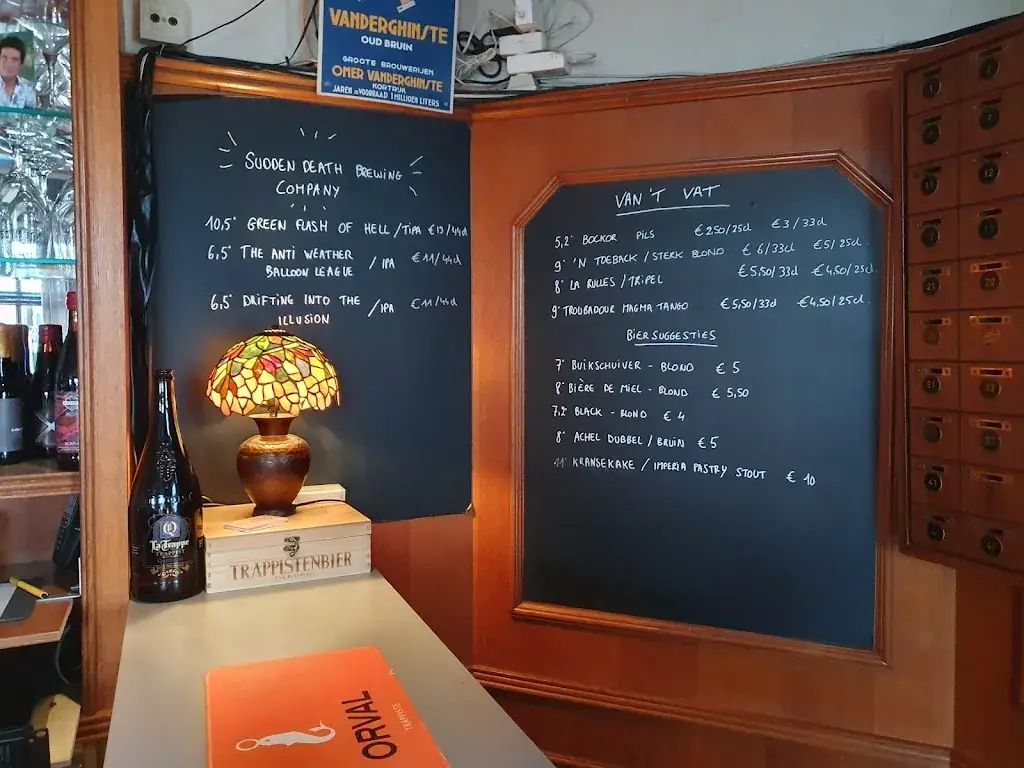 VANDERGHINSTE
OUD BRUIN
GROOTE BROUWERIJEN
OMER VANDERGHINSTE
KORTRIJK
JAREN IN VOORRAAD 1 MILLIOEN LITERS
SUDDEN DEATH BREWING
COMPANY
10,5° GREEN FLASH OF HELL / TIPA €13/44cl
6,5° THE ANTI WEATHER
BALLOON LEAGUE / IPA €11/44cl
6,5° DRIFTING INTO THE
ILLUSION / IPA €11/44cl
VAN'T VAT
5,2° BOCKOR PILS €2,50/25cl €3/33cl
9° 'N TOEBACK / STERK BLOND €6/33cl €5/25cl.
8° LA RULLES / TRIPEL €5,50/33cl €4,50/25cl.
9° TROUBADOUR MAGMA TANGO €5,50/33cl €4,50/25cl.
BIERSUGGESTIES
7° BUIKSCHUIVER - BLOND €5
8° BIÈRE DE MIEL - BLOND €5,50
7,2° BLACK - BLOND €4
8° ACHEL DUBBEL / BRUIN €5
11° KRANSEKAKE / IMPERIA PASTRY STOUT €10
La Trappe
TRAPPIST
TRAPPISTENBIER
ORVAL
TRAPPISTE